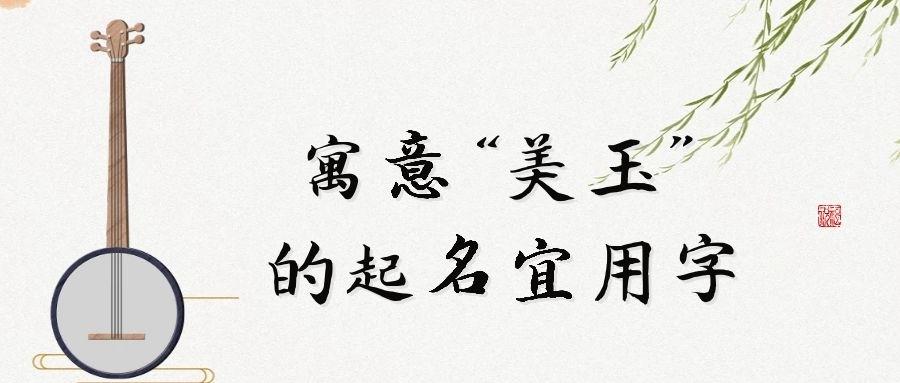 寓意“美玉”
的起名宜用字